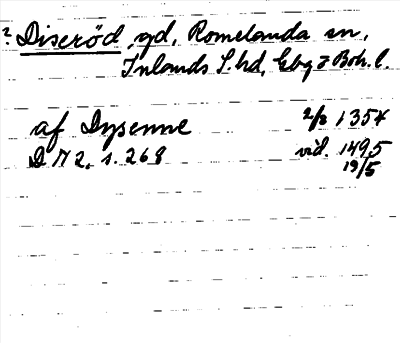 ? Diseröd, gd, Romelanda sn,
Inlands S. hd, Gbg o Boh. l.
af Dysenne 2/2 1354
D N 2, s. 268 vid. 1495
19/5